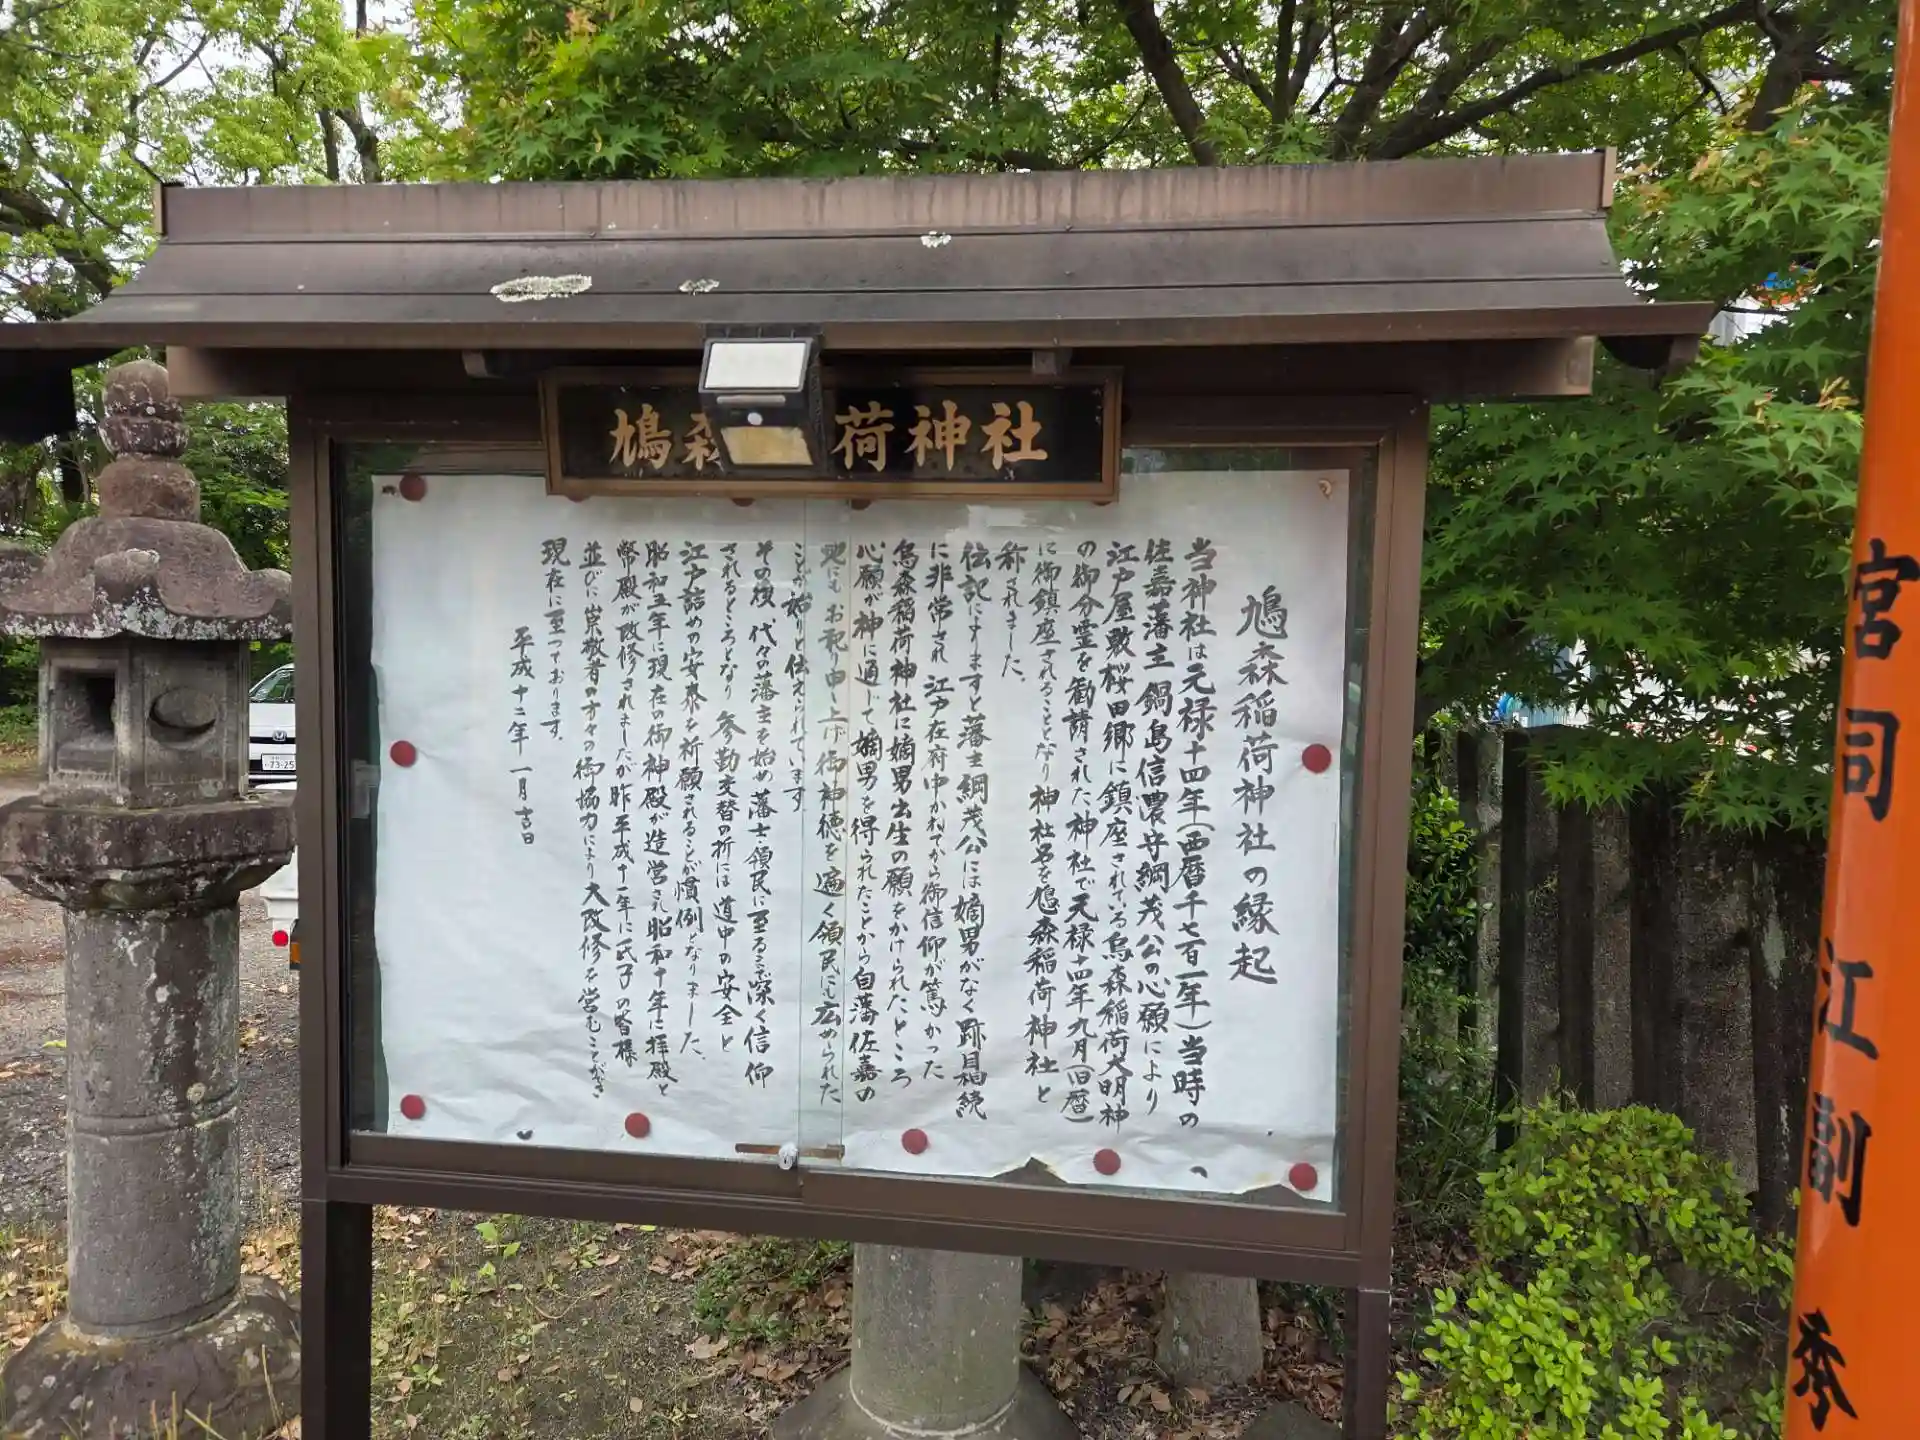 鳩森 荷神社
鳩森稲荷神社の縁起
当神社は元禄十四年(西暦千七百一年)当時の
佐嘉藩主鍋島信濃守綱茂公の心願により
江戸屋敷桜田郷に鎮座されている烏森稲荷大明神
の御分霊を勧請された神社で元禄十四年九月(旧暦)
に御鎮座されることとなり神社名を鳩森稲荷神社と
称されました。
伝記によりますと藩主綱茂公には嫡男がなく跡目相続
に非常され江戸在府中かねてから御信仰が篤かった
烏森稲荷神社に嫡男出生の願をかけられたところ
心願が神に通じて嫡男を得られたことから自藩佐嘉の
地にもお祀り申し上げ御神徳を遍く領民にも広められた
ことが始りと伝えられています。
その後、代々の藩主を始め藩士・領民に至るまで深く信仰
されるところとなり参勤交替の折には道中の安全と
江戸詰めの安泰を祈願されることが慣例となりました。
昭和五年に現在の御神殿が造営され昭和十年に拝殿と
幣殿が改修されましたが昨平成十一年に氏子の皆様
並びに崇敬者の方々の御協力により大改修を営むことができ
現在に至っております。
平成十二年一月吉日
宮司江副秀
7325